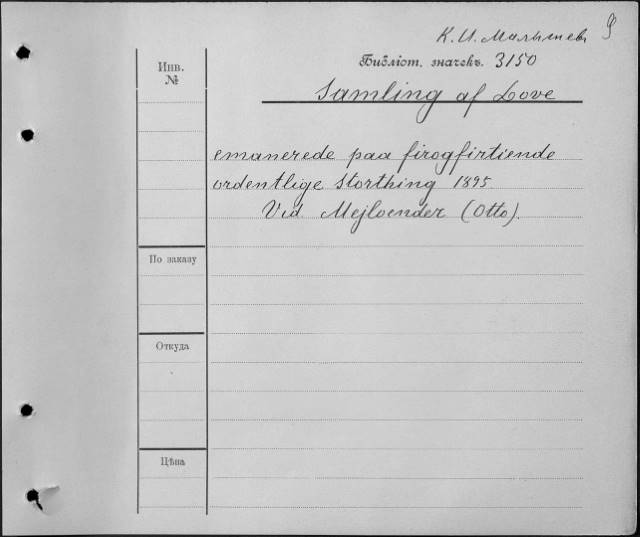 К. И. Малышев
Инв.
№
Библіот. значекъ. 3150
Samling af Love
emanerede paa firogfirtiende
ordentlige Storthing 1895.
Ved Mejloender (Otto).
По заказу
Откуда
Цѣна